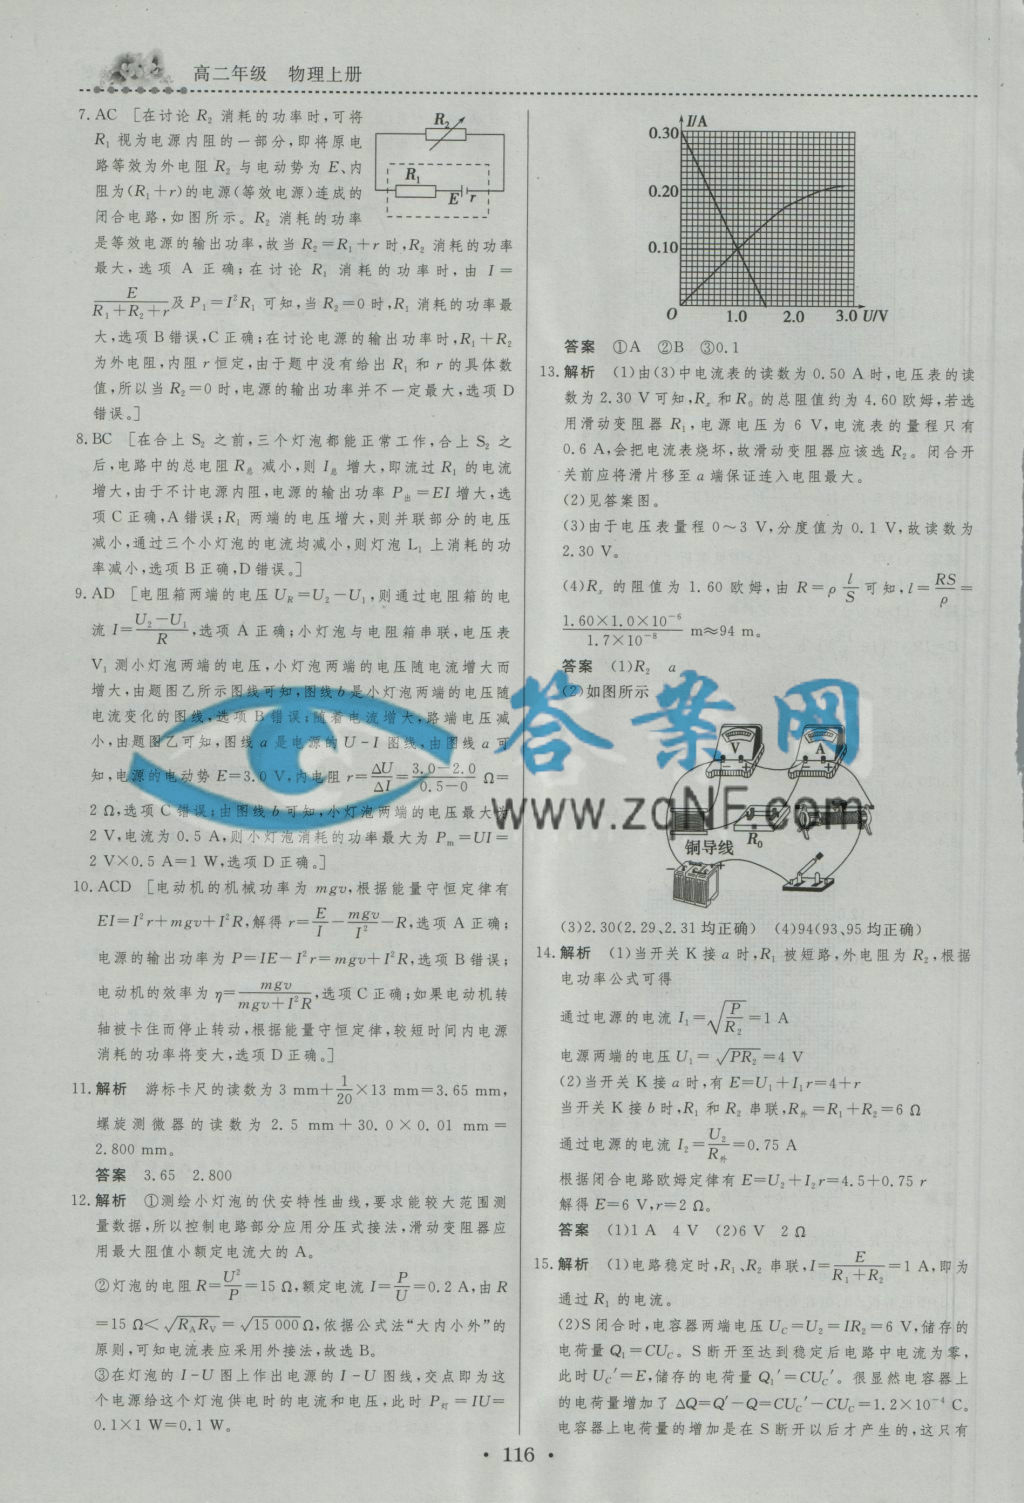 高二年级　物理上册
7. AC　[在讨论 R₂ 消耗的功率时,可将
R₁ 视为电源内阻的一部分,即将原电
路等效为外电阻 R₂ 与电动势为 E、内
阻为(R₁+r)的电源(等效电源)连成的
闭合电路,如图所示。R₂ 消耗的功率
是等效电源的输出功率,故当 R₂=R₁+r 时,R₂ 消耗的功率
最大,选项 A 正确;在讨论 R₁ 消耗的功率时,由 I=
E/(R₁+R₂+r)及 P₁=I²R₁ 可知,当 R₂=0 时,R₁ 消耗的功率最
大,选项 B 错误,C 正确;在讨论电源的输出功率时,R₁+R₂
为外电阻,内阻 r 恒定,由于题中没有给出 R₁ 和 r 的具体数
值,所以当 R₂=0 时,电源的输出功率并不一定最大,选项 D
错误。]
R₂
R₁
E r
8. BC　[在合上 S₂ 之前,三个灯泡都能正常工作,合上 S₂ 之
后,电路中的总电阻 R总 减小,则 I总 增大,即流过 R₁ 的电流
增大,由于不计电源内阻,电源的输出功率 P出=EI 增大,选
项 C 正确,A 错误;R₁ 两端的电压增大,则并联部分的电压
减小,通过三个小灯泡的电流均减小,则灯泡 L₁ 上消耗的功
率减小,选项 B 正确,D 错误。]
9. AD　[电阻箱两端的电压 U_R=U₂-U₁,则通过电阻箱的电
流 I=(U₂-U₁)/R,选项 A 正确;小灯泡与电阻箱串联,电压表
V₁ 测小灯泡两端的电压,小灯泡两端的电压随电流增大而
增大,由题图乙所示图线可知,图线 b 是小灯泡两端的电压随
电流变化的图线,选项 B 错误;随着电流增大,路端电压减
小,由题图乙可知,图线 a 是电源的 U-I 图线,由图线 a 可
知,电源的电动势 E=3.0 V,内电阻 r=ΔU/ΔI=(3.0-2.0)/(0.5-0) Ω=
2 Ω,选项 C 错误;由图线 b 可知,小灯泡两端的电压最大为
2 V,电流为 0.5 A,则小灯泡消耗的功率最大为 Pm=UI=
2 V×0.5 A=1 W,选项 D 正确。]
10. ACD　[电动机的机械功率为 mgv,根据能量守恒定律有
EI=I²r+mgv+I²R,解得 r=E/I-mgv/I²-R,选项 A 正确;
电源的输出功率为 P=IE-I²r=mgv+I²R,选项 B 错误;
电动机的效率为 η=mgv/(mgv+I²R),选项 C 正确;如果电动机转
轴被卡住而停止转动,根据能量守恒定律,较短时间内电源
消耗的功率将变大,选项 D 正确。]
11. 解析　游标卡尺的读数为 3 mm+1/20×13 mm=3.65 mm,
螺旋测微器的读数为 2.5 mm+30.0×0.01 mm=
2.800 mm。
答案　3.65　2.800
12. 解析　①测绘小灯泡的伏安特性曲线,要求能较大范围测
量数据,所以控制电路部分应用分压式接法,滑动变阻器应
用最大阻值小额定电流大的 A。
②灯泡的电阻 R=U²/P=15 Ω,额定电流 I=P/U=0.2 A,由 R
=15 Ω<√(R_A R_V)=√15 000 Ω,依据公式法“大内小外”的
原则,可知电流表应采用外接法,故选 B。
③在灯泡的 I-U 图上作出电源的 I-U 图线,交点即为这
个电源给这个灯泡供电时的电流和电压,此时 P灯=IU=
0.1×1 W=0.1 W。
I/A
0.30
0.20
0.10
O　1.0　2.0　3.0 U/V
答案　①A　②B　③0.1
13. 解析　(1)由(3)中电流表的读数为 0.50 A 时,电压表的读
数为 2.30 V 可知,Rₓ 和 R₀ 的总阻值约为 4.60 欧姆,若选
用滑动变阻器 R₁,电源电压为 6 V,电流表的量程只有
0.6 A,会把电流表烧坏,故滑动变阻器应该选 R₂。闭合开
关前应将滑片移至 a 端保证连入电阻最大。
(2)见答案图。
(3)由于电压表量程 0～3 V,分度值为 0.1 V,故读数为
2.30 V。
(4)Rₓ 的阻值为 1.60 欧姆,由 R=ρ l/S 可知,l=RS/ρ=
(1.60×1.0×10⁻⁶)/(1.7×10⁻⁸) m≈94 m。
答案　(1)R₂　a
(2)如图所示
V
A
R₀
铜导线
(3)2.30(2.29、2.31 均正确)　(4)94(93、95 均正确)
14. 解析　(1)当开关 K 接 a 时,R₁ 被短路,外电阻为 R₂,根据
电功率公式可得
通过电源的电流 I₁=√(P/R₂)=1 A
电源两端的电压 U₁=√(PR₂)=4 V
(2)当开关 K 接 a 时,有 E=U₁+I₁r=4+r
当开关 K 接 b 时,R₁ 和 R₂ 串联,R外=R₁+R₂=6 Ω
通过电源的电流 I₂=U₂/R外=0.75 A
根据闭合电路欧姆定律有 E=U₂+I₂r=4.5+0.75 r
解得 E=6 V,r=2 Ω。
答案　(1)1 A　4 V　(2)6 V　2 Ω
15. 解析　(1)电路稳定时,R₁、R₂ 串联,I=E/(R₁+R₂)=1 A,即为
通过 R₁ 的电流。
(2)S 闭合时,电容器两端电压 U_C=U₂=IR₂=6 V,储存的
电荷量 Q₁=CU_C。S 断开至达到稳定后电路中电流为零,
此时 U_C′=E,储存的电荷量 Q₁′=CU_C′。很显然电容器上
的电荷量增加了 ΔQ=Q′-Q=CU_C′-CU_C=1.2×10⁻⁴ C。
电容器上电荷量的增加是在 S 断开以后才产生的,这只有
答案网
www.zqNF.com
• 116 •